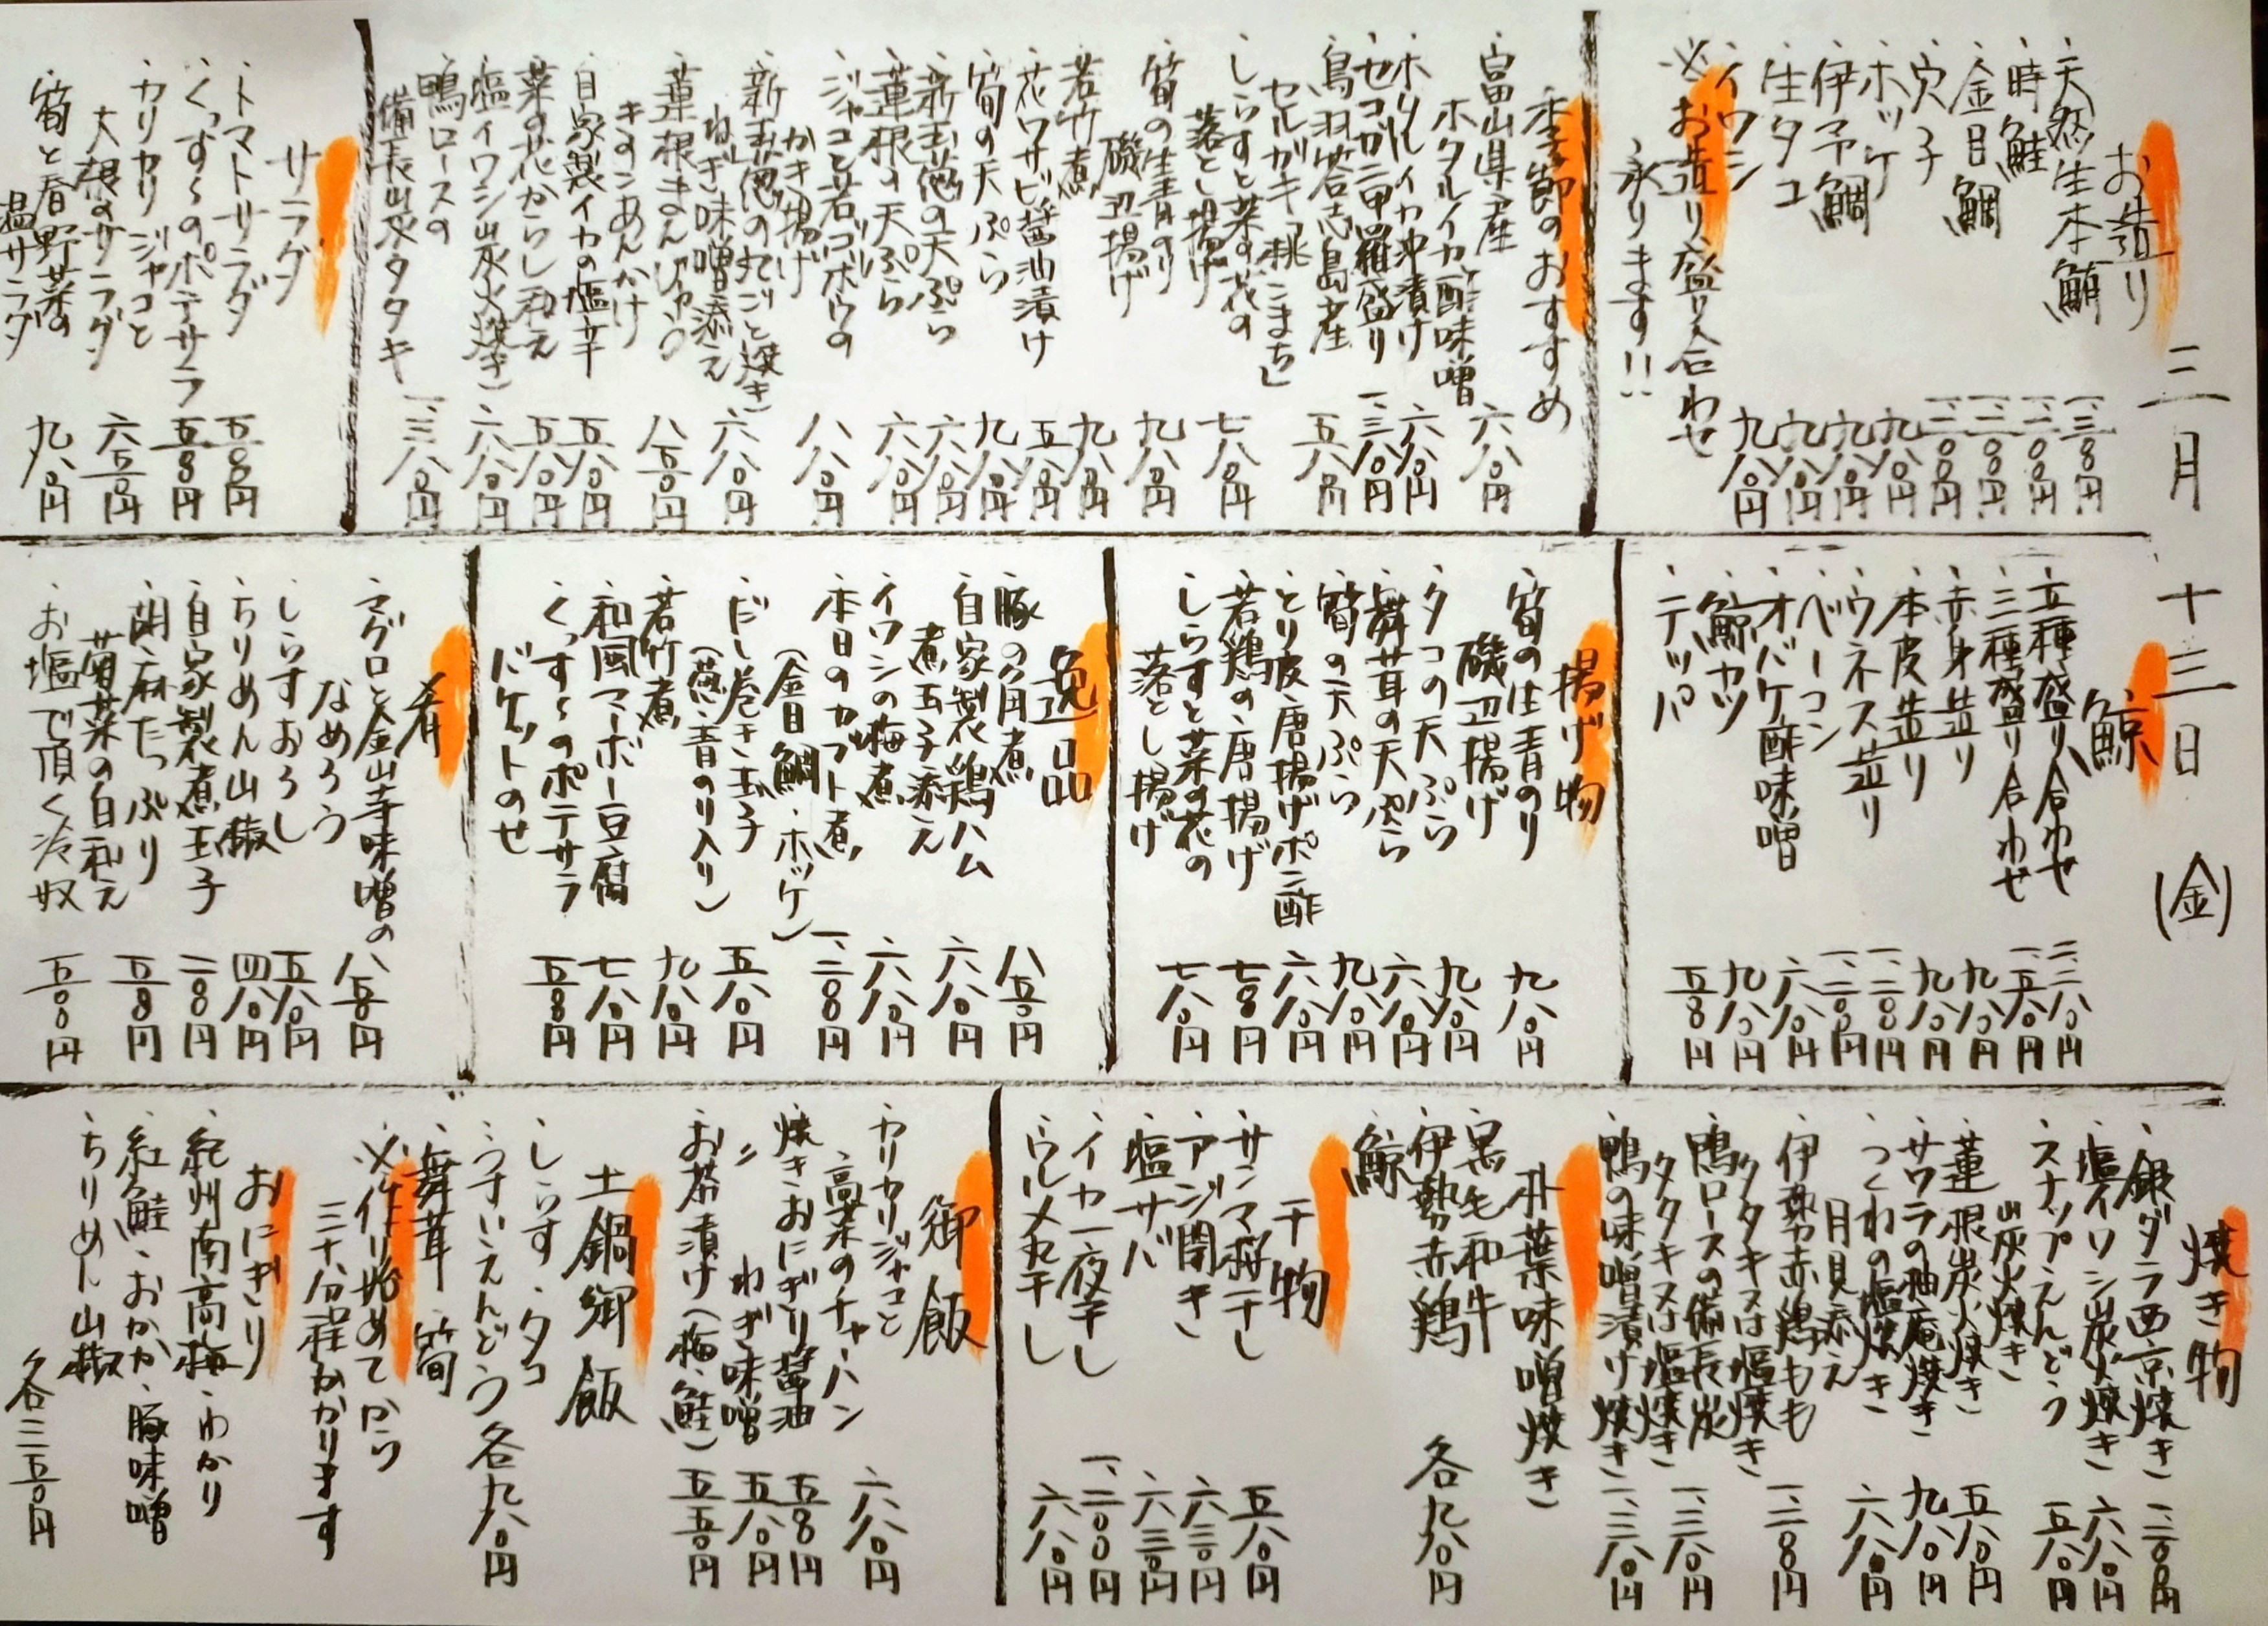 三月十三日(金)
お造り
・天然生本鮪 一、三〇〇円
・時鮭 一、二〇〇円
・金目鯛 一、二〇〇円
・穴子 一、二〇〇円
・ホッケ 九八〇円
・伊予鯛 九八〇円
・生タコ 九八〇円
・イワシ 九八〇円
※お造り盛り合わせ
承ります!!
季節のおすすめ
・富山県産
ホタルイカ酢味噌 六八〇円
・ホタルイカ沖漬け 六八〇円
・セコガニ甲羅盛り 一、三八〇円
・鳥羽答志島産
セルガキ「桃こまち」 五八〇円
・しらすと菜の花の
落とし揚げ 七八〇円
・筍の生青のり
磯辺揚げ 九八〇円
・若竹煮 九八〇円
・花ワサビ醤油漬け 五八〇円
・筍の天ぷら 九八〇円
・新玉葱の天ぷら 六八〇円
・蓮根の天ぷら 六八〇円
・ジャコと若ゴボウの
かき揚げ 八八〇円
・新玉葱の丸ごと焼き
ねぎ味噌添え 六八〇円
・蓮根まんじゅう
きのこあんかけ 八五〇円
・自家製イカの塩辛 五八〇円
・菜の花からし和え 五八〇円
・塩イワシ炭火焼き 六八〇円
・鴨ロースの
備長炭タタキ 一、三八〇円
サラダ
・トマトサラダ 五〇〇円
・くっすーのポテサラ 五五〇円
・カリカリジャコと
大根のサラダ 六五〇円
・筍と春野菜の
温サラダ 九八〇円
鯨
・五種盛り合わせ 二、二八〇円
・三種盛り合わせ 一、五八〇円
・赤身造り 九八〇円
・本皮造り 九八〇円
・ウネス造り 一、二〇〇円
・ベーコン 一、二〇〇円
・オバケ酢味噌 六八〇円
・鯨カツ 九八〇円
・テッパ 五五〇円
揚げ物
・筍の生青のり
磯辺揚げ 九八〇円
・タコの天ぷら 九八〇円
・舞茸の天ぷら 六八〇円
・筍の天ぷら 九八〇円
・とり皮唐揚げポン酢 六八〇円
・若鶏の唐揚げ 七〇〇円
・しらすと菜の花の
落とし揚げ 七八〇円
逸品
・豚の角煮 八五〇円
・自家製鶏ハム
煮玉子添え 六八〇円
・イワシの梅煮 六八〇円
・本日のカブト煮
(金目鯛・ホッケ) 一、二〇〇円
・だし巻き玉子
(葱・青のり入り) 五八〇円
・若竹煮 九八〇円
・和風マーボー豆腐 七八〇円
・くっすーのポテサラ
バケットのせ 五五〇円
肴
・マグロと金山寺味噌の
なめろう 八五〇円
・しらすおろし 五八〇円
・ちりめん山椒 四八〇円
・自家製煮玉子 二〇〇円
・胡麻たっぷり
菊菜の白和え 五五〇円
・お塩で頂く冷奴 五〇〇円
焼き物
・銀ダラ西京焼き 一、二〇〇円
・塩イワシ炭火焼き 六八〇円
・スナップえんどう
炭火焼き 五八〇円
・蓮根炭火焼き 五八〇円
・サワラの柚庵焼き 九八〇円
・つくねの塩焼き
月見添え 六八〇円
・伊勢赤鶏もも
タタキ又は塩焼き 一、二〇〇円
・鴨ロースの備長炭
タタキ又は塩焼き 一、三八〇円
・鴨の味噌漬け焼き 一、三八〇円
朴葉味噌焼き
・黒毛和牛
・伊勢赤鶏 各九八〇円
・鯨
干物
・サンマ桜干し 五八〇円
・アジ開き 六三〇円
・塩サバ 六三〇円
・イカ一夜干し 一、二〇〇円
・ウルメ丸干し 六八〇円
御飯
・カリカリジャコと
高菜のチャーハン 六八〇円
・焼きおにぎり醤油 五五〇円
・〃 ねぎ味噌 五八〇円
・お茶漬け(梅・鮭) 五五〇円
土鍋御飯
・しらす・タコ
・うすいえんどう 各九八〇円
・舞茸・筍
※作り始めてから
三十分程かかります
おにぎり
・紀州南高梅・わかり
・紅鮭・おかか・豚味噌
・ちりめん山椒 各三五〇円